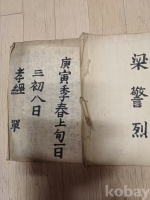 梁警烈
庚寅季春上旬一日
三初八日
孝經 單
kobay